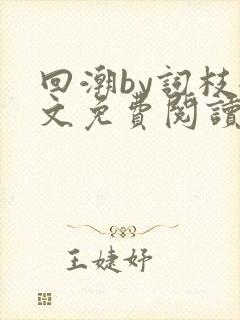 回潮by詞枝
文免費閱讀
王婕妤